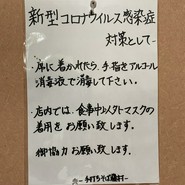 新型コロナウイルス感染症
対策として-
・席に着かれたら、手指をアルコール
消毒液で消毒して下さい。
・店内では、食事中以外マスクの
着用をお願い致します。
御協力お願い致します。
手打ちそば